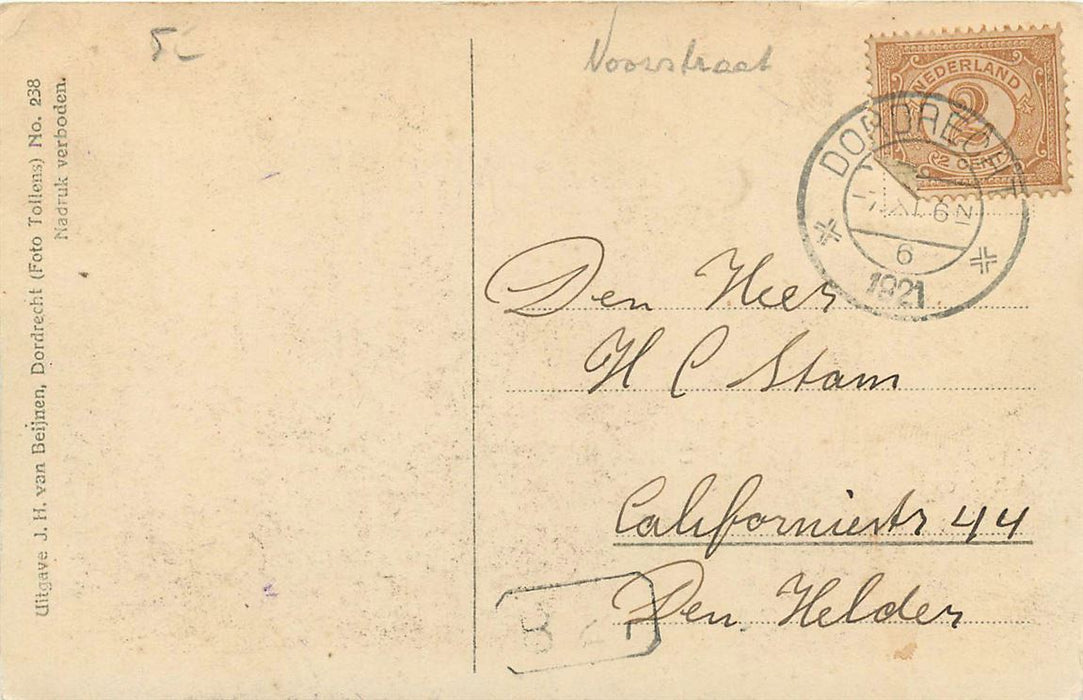 5-
Voorstraat
NEDERLAND
2
2 CENT
DORDRECHT
6
1921
Uitgave J. H. van Beijnen, Dordrecht (Foto Tollens) No. 238
Nadruk verboden.
Den Heer
H C Stam
Californiestr 44
Den Helder